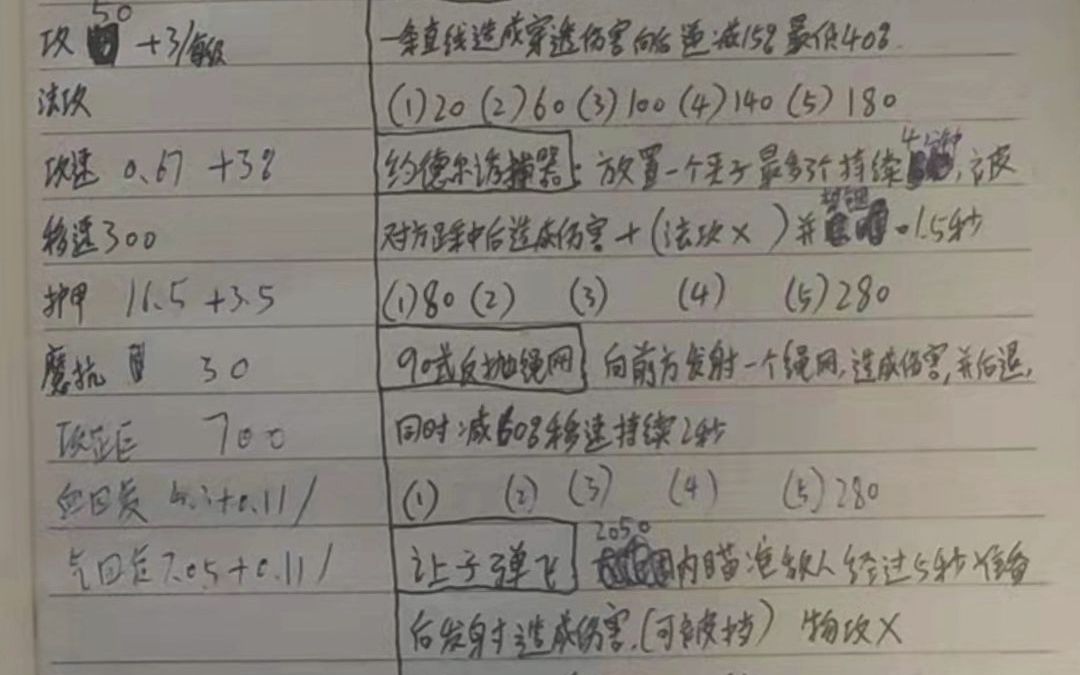 50
攻 +3/每级
法攻
攻速 0.67 +3%
移速300
护甲 11.5 +3.5
魔抗 30
攻距 700
血回复 +0.11/
气回复7.05+0.11/
一条直线造成穿透伤害向后递减15%最低40%.
(1)20 (2)60 (3)100 (4)140 (5)180
约德尔诱捕器: 放置一个夹子最多3个持续4分钟,被
对方踩中后造成伤害+(法攻X )并禁锢 1.5秒
(1)80 (2) (3) (4) (5)280
90式反抛绳网 向前方发射一个绳网,造成伤害,并后退,
同时减60%移速持续2秒
(1) (2) (3) (4) (5)280
让子弹飞 2050内瞄准敌人经过5秒准备
后发射造成伤害.(可被挡) 物攻X